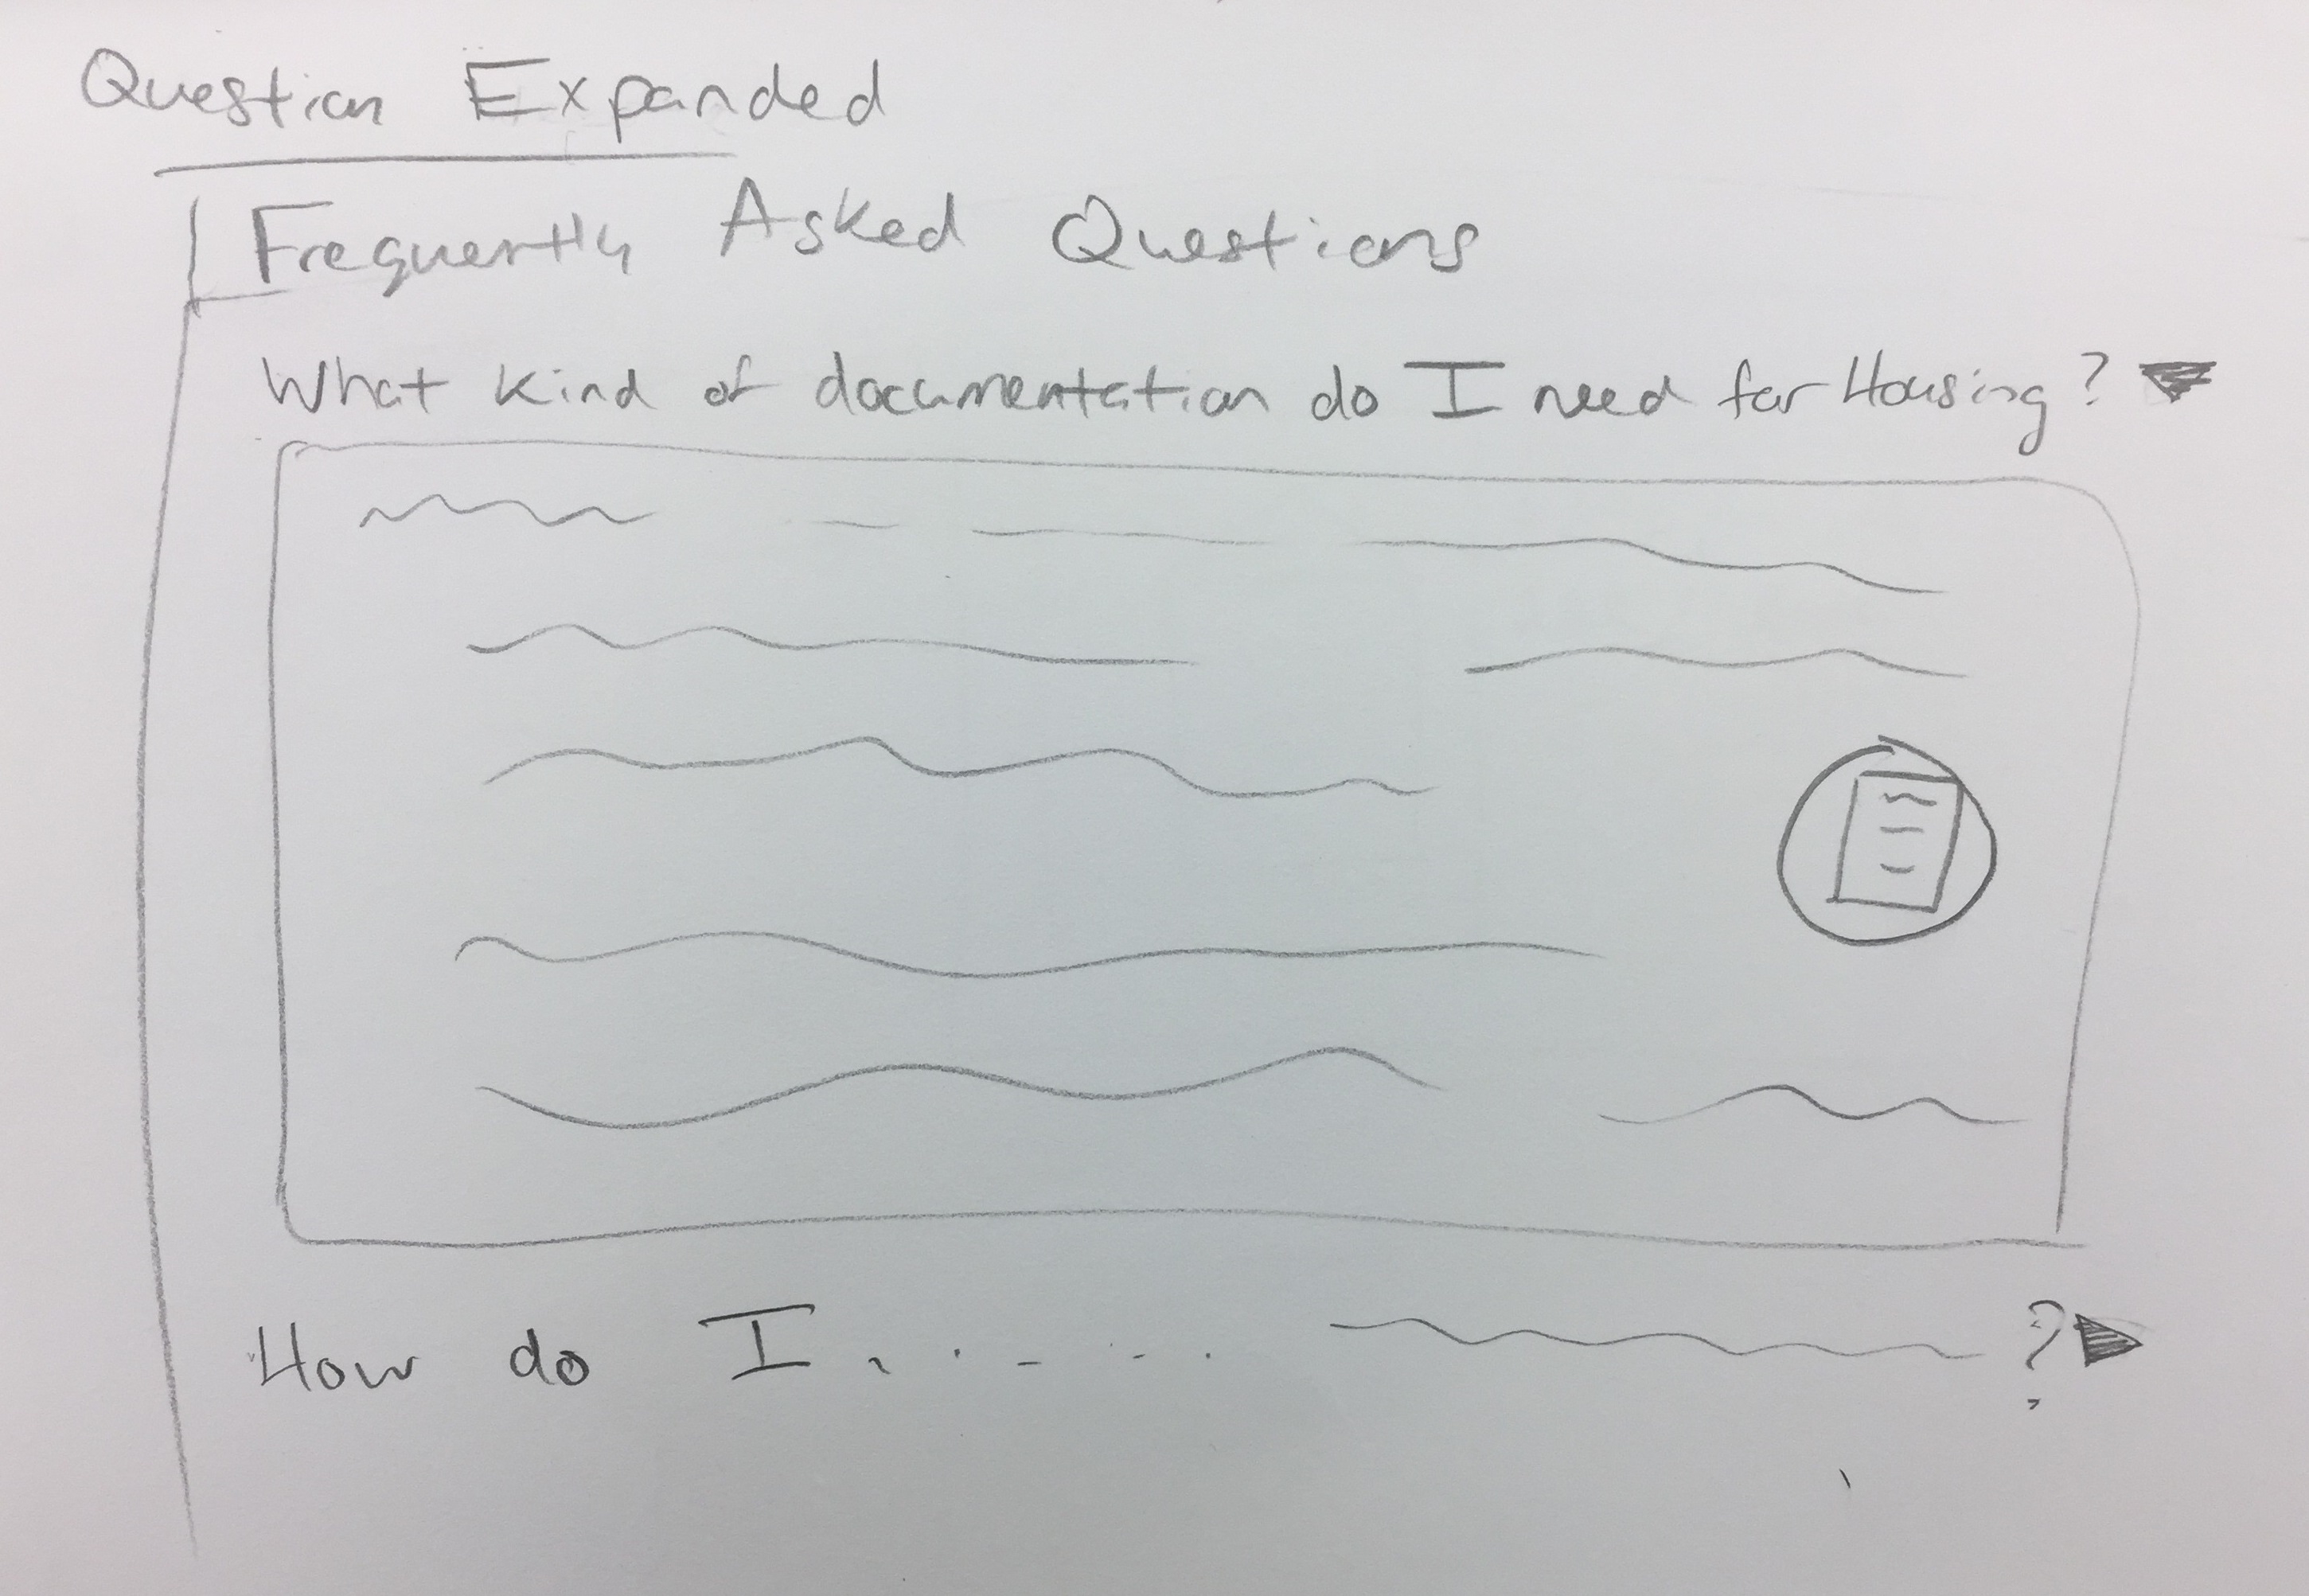 Question Expanded
Frequently Asked Questions
What kind of documentation do I need for Housing?
How do I . . - - . . ?